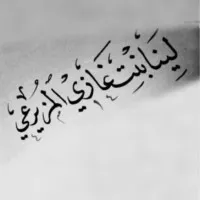 لينا بنت غازي المزيرعي